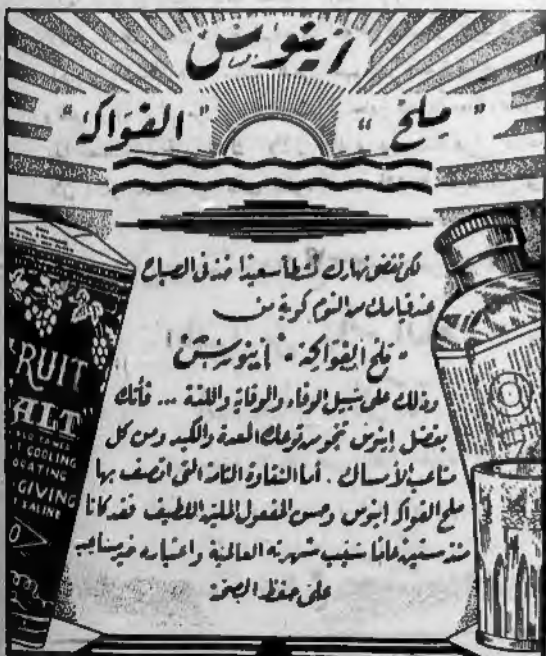 اينوس
"ملح" "الفواكه"
لكي تقضي نهارك نشطاً سعيداً خذ في الصباح
عند قيامك من النوم كوبة من
"ملح الفواكه" اينوس
وذلك على سبيل الوقاية واللذة ... فأنك
بفضل إينوس تنجو من توعك المعدة والكبد ومن كل
متاعب الأمساك . أما النقاوة التامة التي اتصف بها
ملح الفواكه اينوس وحسن المفعول الملين اللطيف فقد كانا
منذ ستين عاماً سبب شهرته العالمية واعتباره خير
على حفظ الصحة
RUIT
ALT"
COOLING
GIVING
SALINE